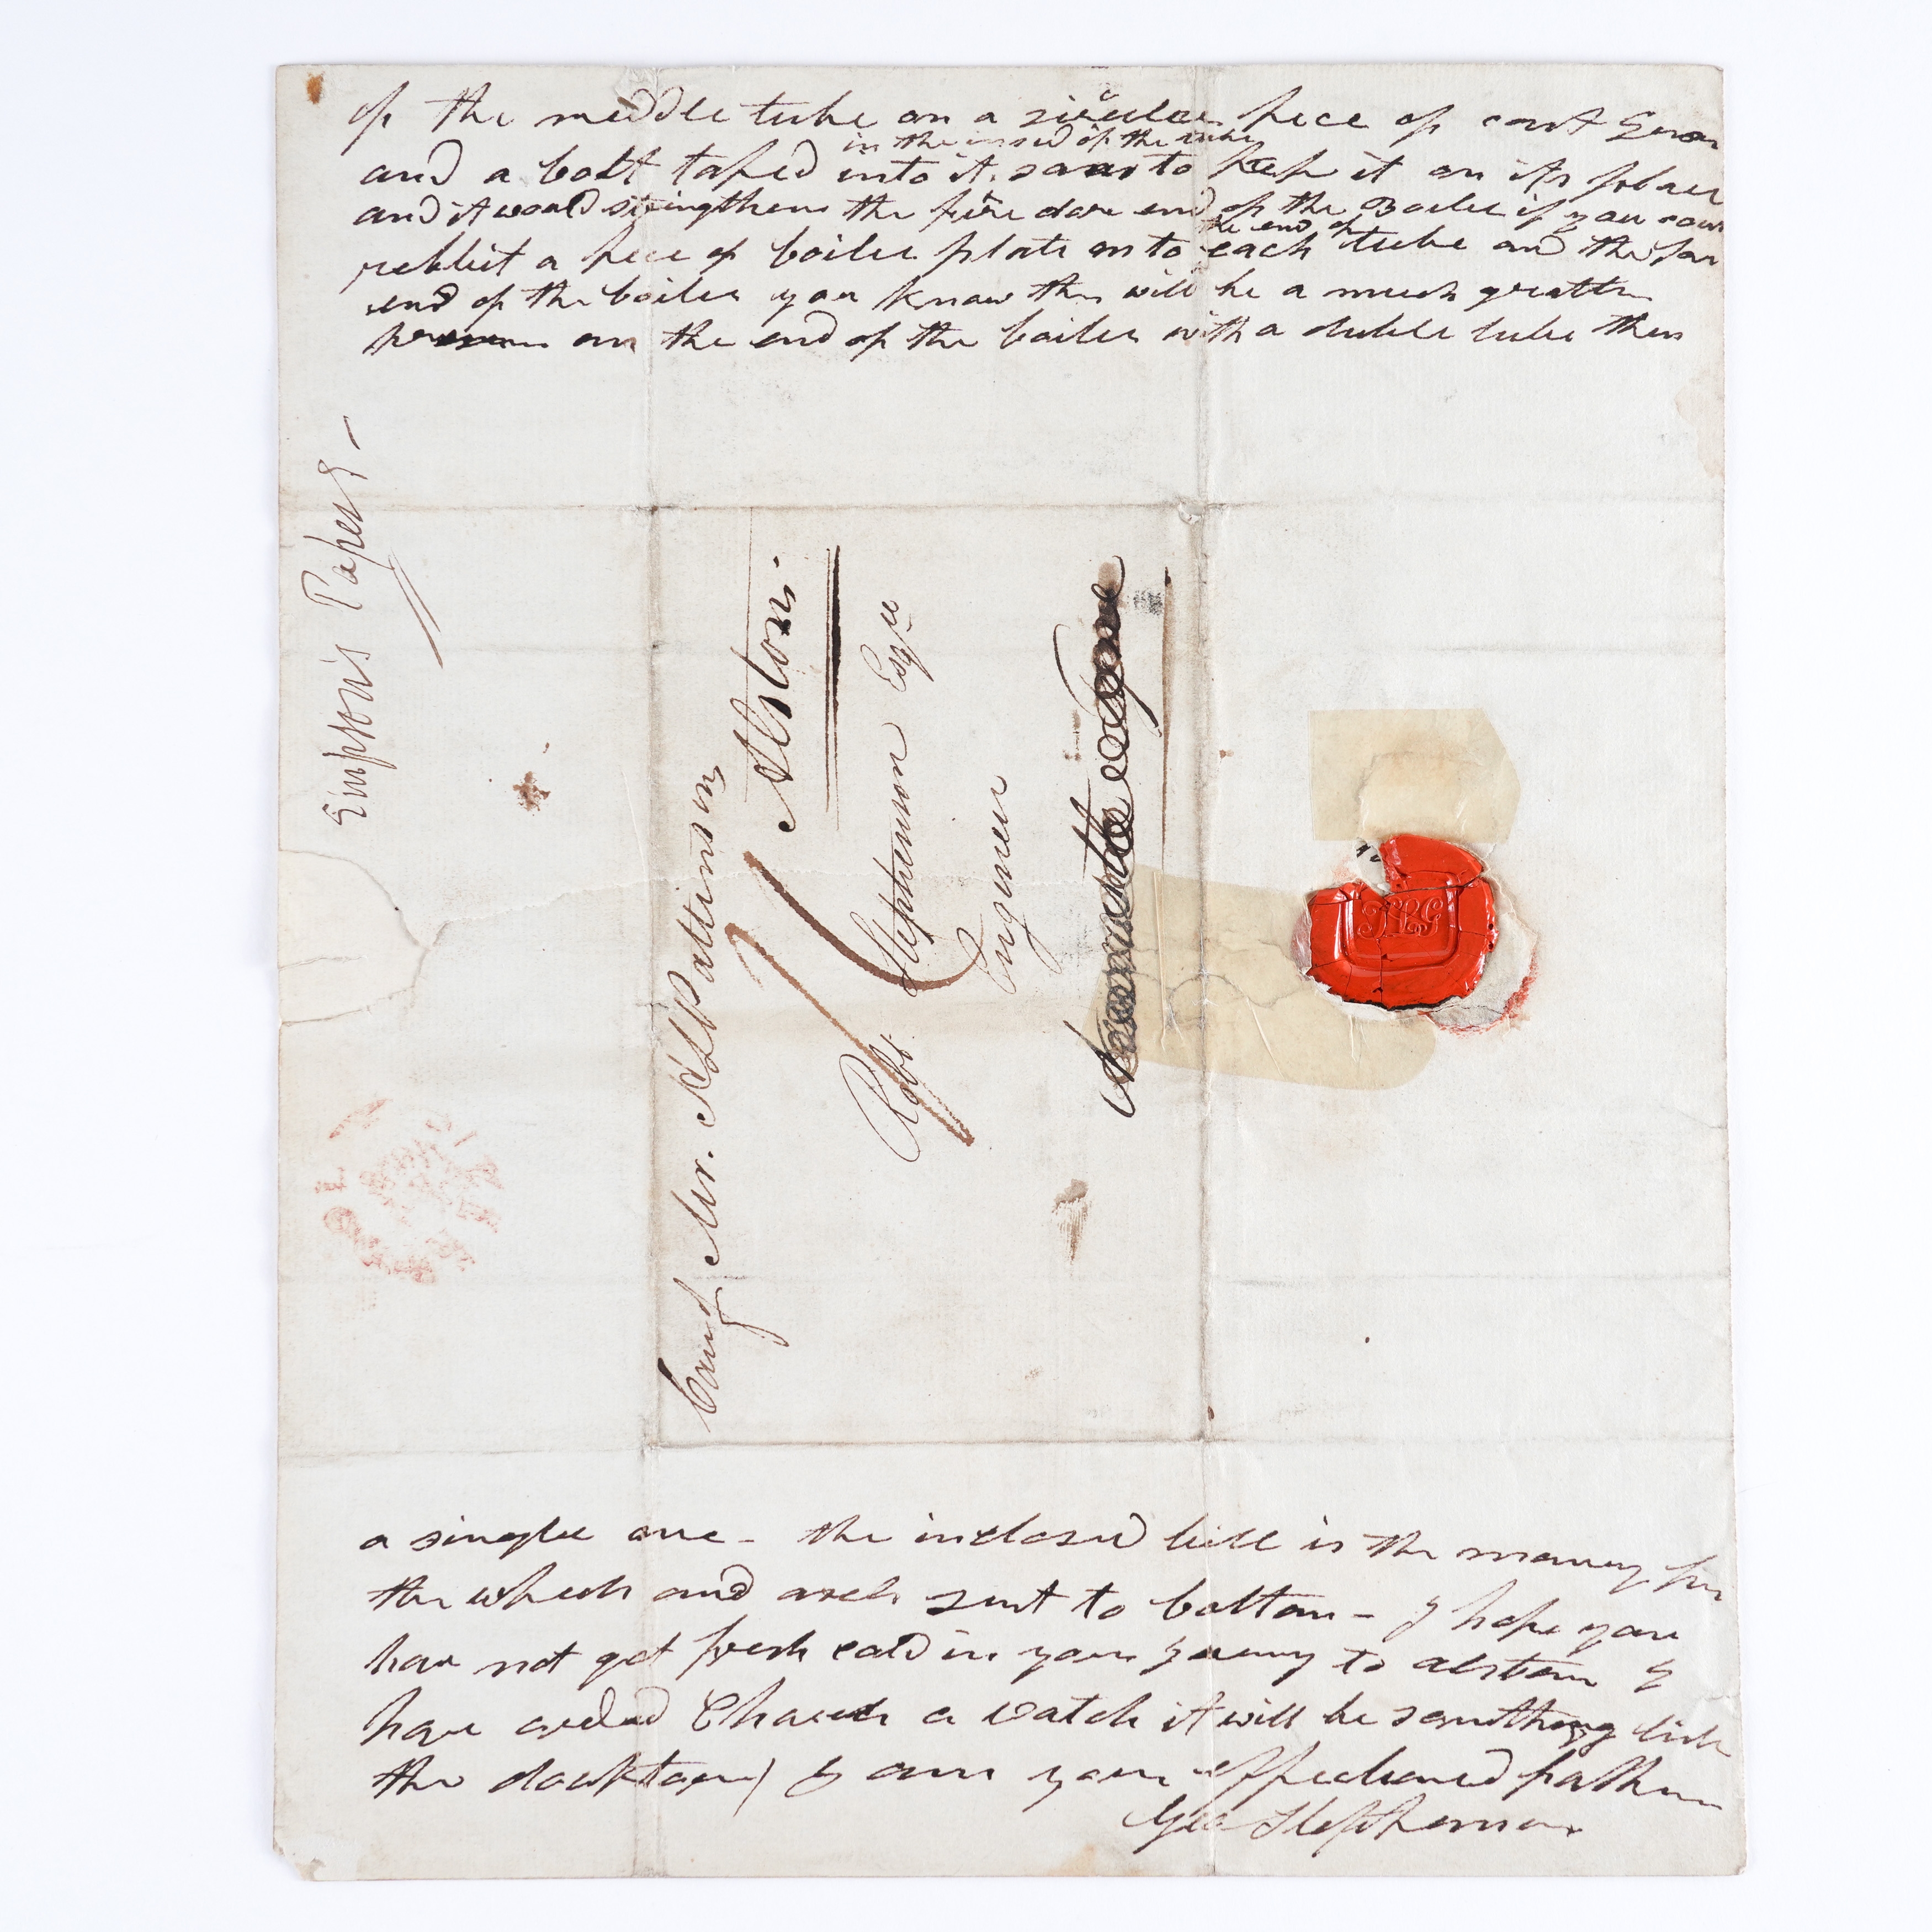 of the meddle tube on a sirculer pece of cast Iron
in the insed of the tube
and a bolt taped into it so as to keep it on its plaice
and it would stringthen the fire dore end of the Boiler if you
the end of
rebbit a pece of boiler plate on to each tube and the
end of the boiler you know ther will be a much gratter
on the end of the boiler with a duble tube then
Simpson's Papers
Mr. H L Pattinson
Alston
Robt. Stephenson Esqre
Engineer
HLG
a single one - the inclosed bill is the money for
the wheels and axels sent to bolton - I hope you
have not got fresh cold in your jurney to alston I
have ordred Charels a watch it will be something like
the docktors) I am your affectioned father
Geo Stephenson